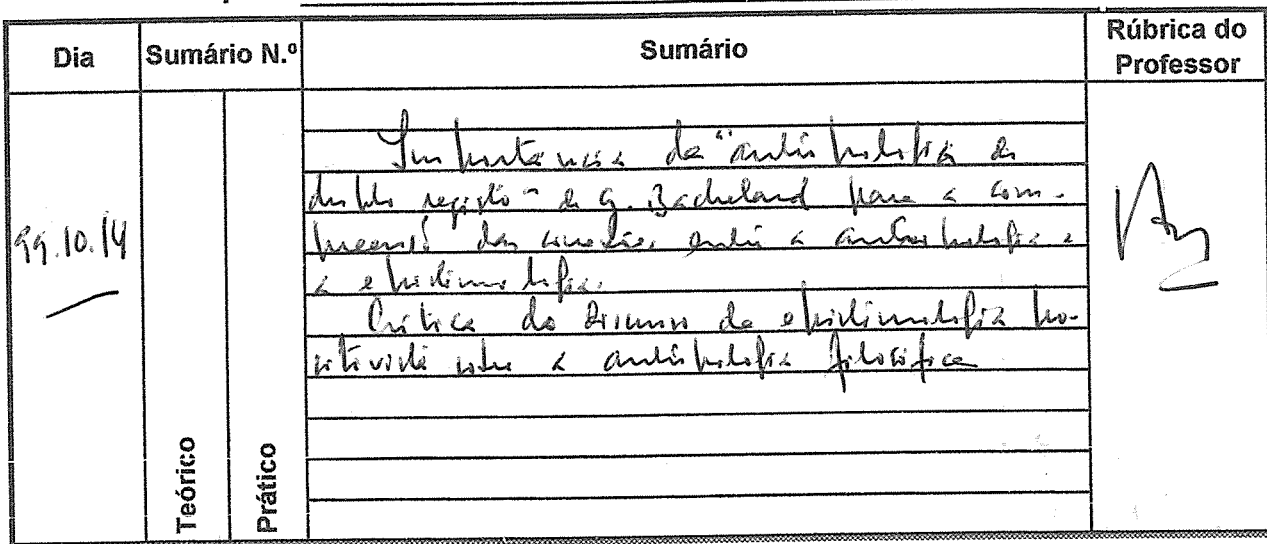 Dia
Sumário N.º
Sumário
Rúbrica do
Professor
99.10.14
Teórico
Prático
Importância da "antropologia do
duplo registo" de G. Bachelard para a com-
preensão das conexões entre a antropologia e
a epistemologia.
Crítica do discurso da epistemologia po-
sitivista sobre a antropologia filosófica